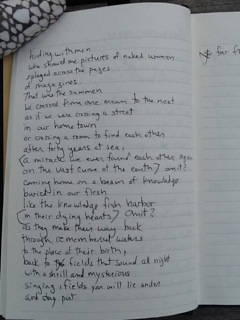 hiding with men
who showed me pictures of naked women
splayed across the pages
of magazines.
That was the summer
we crossed from one ocean to the next
as if we were crossing a street
in our hometown
or crossing a room to find each other
after forty years at sea,
(a miracle we even found each other again
on the last curve of the earth) omit?
coming home on a beam of knowledge
buried in our flesh
like the knowledge fish harbor
(in their dying hearts) omit?
as they make their way back
through remembered waters
to the place of their birth,
back to fields that sound at night
with a shrill and mysterious
singing, fields you will lie under
and stay put
far fr